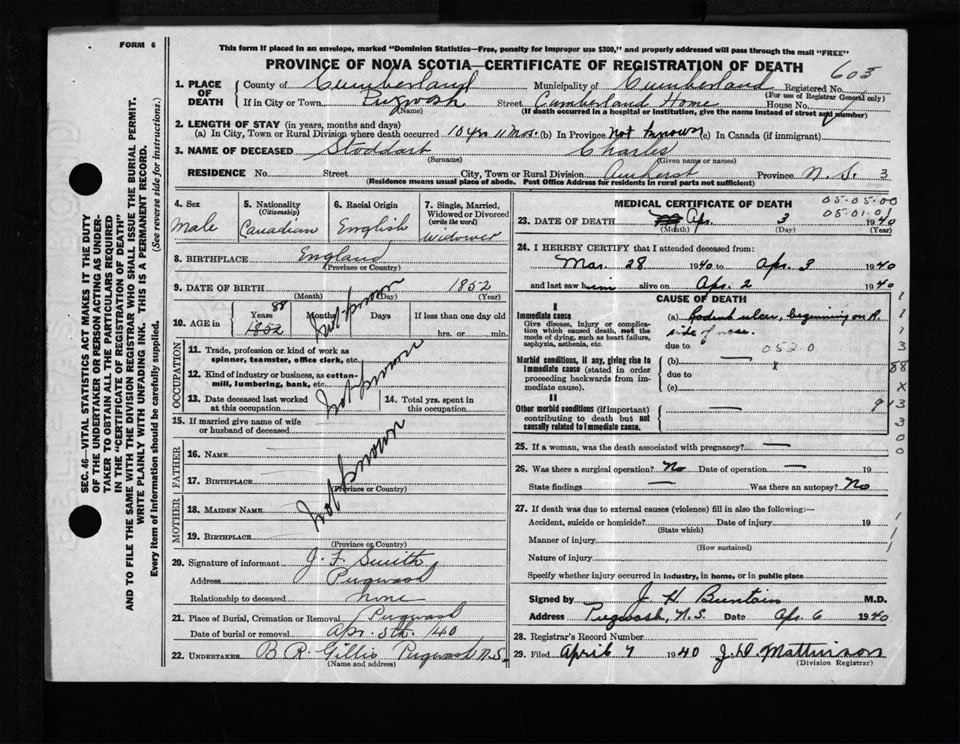 FORM 6
This form if placed in an envelope, marked "Dominion Statistics—Free, penalty for improper use $300," and properly addressed will pass through the mail "FREE"
PROVINCE OF NOVA SCOTIA—CERTIFICATE OF REGISTRATION OF DEATH
603
1. PLACE OF DEATH County of Cumberland Municipality of Cumberland Registered No.
(For use of Registrar General only)
If in City or Town Pugwash Street Cumberland Home House No.
(Name) (If death occurred in a hospital or institution, give the name instead of street and number)
2. LENGTH OF STAY (in years, months and days)
(a) In City, Town or Rural Division where death occurred 10 yrs 11 Mos. (b) In Province Not known (c) In Canada (if immigrant)
3. NAME OF DECEASED Stoddart Charles
(Surname) (Given name or names)
RESIDENCE No. Street City, Town or Rural Division Amherst Province N. S. 3
(Residence means usual place of abode. Post Office Address for residents in rural parts not sufficient)
4. Sex
Male
5. Nationality
(Citizenship)
Canadian
6. Racial Origin
English
7. Single, Married, Widowed or Divorced
(write the word)
Widower
8. BIRTHPLACE England
(Province or Country)
9. DATE OF BIRTH 1852
(Month) (Day) (Year)
Not known
10. AGE in
Years 88
1852
If less than one day old
hrs. or min.
OCCUPATION
11. Trade, profession or kind of work as spinner, teamster, office clerk, etc.
12. Kind of industry or business, as cotton-mill, lumbering, bank, etc.
Not known
13. Date deceased last worked at this occupation
14. Total yrs. spent in this occupation
15. If married give name of wife or husband of deceased
FATHER
16. NAME
17. BIRTHPLACE
(Province or Country)
Not known
MOTHER
18. MAIDEN NAME
19. BIRTHPLACE
(Province or Country)
20. Signature of informant J. F. Smith
Address Pugwash
Relationship to deceased None
21. Place of Burial, Cremation or Removal Pugwash
Date of burial or removal Apr. 5th. /40
22. UNDERTAKER B. R. Gillis Pugwash N.S.
(Name and address)
MEDICAL CERTIFICATE OF DEATH
05-05-00
05-01-01
23. DATE OF DEATH Apr. 3 1940
(Month) (Day) (Year)
24. I HEREBY CERTIFY that I attended deceased from:
Mar. 28 1940 to Apr. 3 1940
and last saw him alive on Apr. 2 1940
CAUSE OF DEATH
I
Immediate cause
Give disease, injury or complication which caused death, not the mode of dying, such as heart failure, asphyxia, asthenia, etc.
(a) Rodent ulcer, beginning on R. side of nose.
due to 052.0
Morbid conditions, if any, giving rise to immediate cause (stated in order proceeding backwards from immediate cause).
(b) — x
due to
(c) —
II
Other morbid conditions (if important) contributing to death but not causally related to immediate cause.
1
1
1
3
88
x
913
3
0
0
25. If a woman, was the death associated with pregnancy? —
26. Was there a surgical operation? No Date of operation — 19
State findings — Was there an autopsy? No
27. If death was due to external causes (violence) fill in also the following:—
Accident, suicide or homicide? Date of injury 19
(State which)
Manner of injury
(How sustained)
Nature of injury
Specify whether injury occurred in industry, in home, or in public place
Signed by J. H. Buntain M.D.
Address Pugwash, N.S. Date Apr. 6 1940
28. Registrar's Record Number
29. Filed April 7 1940 J. D. Mattinson
(Division Registrar)
SEC. 46—VITAL STATISTICS ACT MAKES IT THE DUTY
OF THE UNDERTAKER OR PERSON ACTING AS UNDER-
TAKER TO OBTAIN ALL THE PARTICULARS REQUIRED
IN THE "CERTIFICATE OF REGISTRATION OF DEATH"
AND TO FILE THE SAME WITH THE DIVISION REGISTRAR WHO SHALL ISSUE THE BURIAL PERMIT.
WRITE PLAINLY WITH UNFADING INK. THIS IS A PERMANENT RECORD.
Every item of information should be carefully supplied. (See reverse side for instructions.)